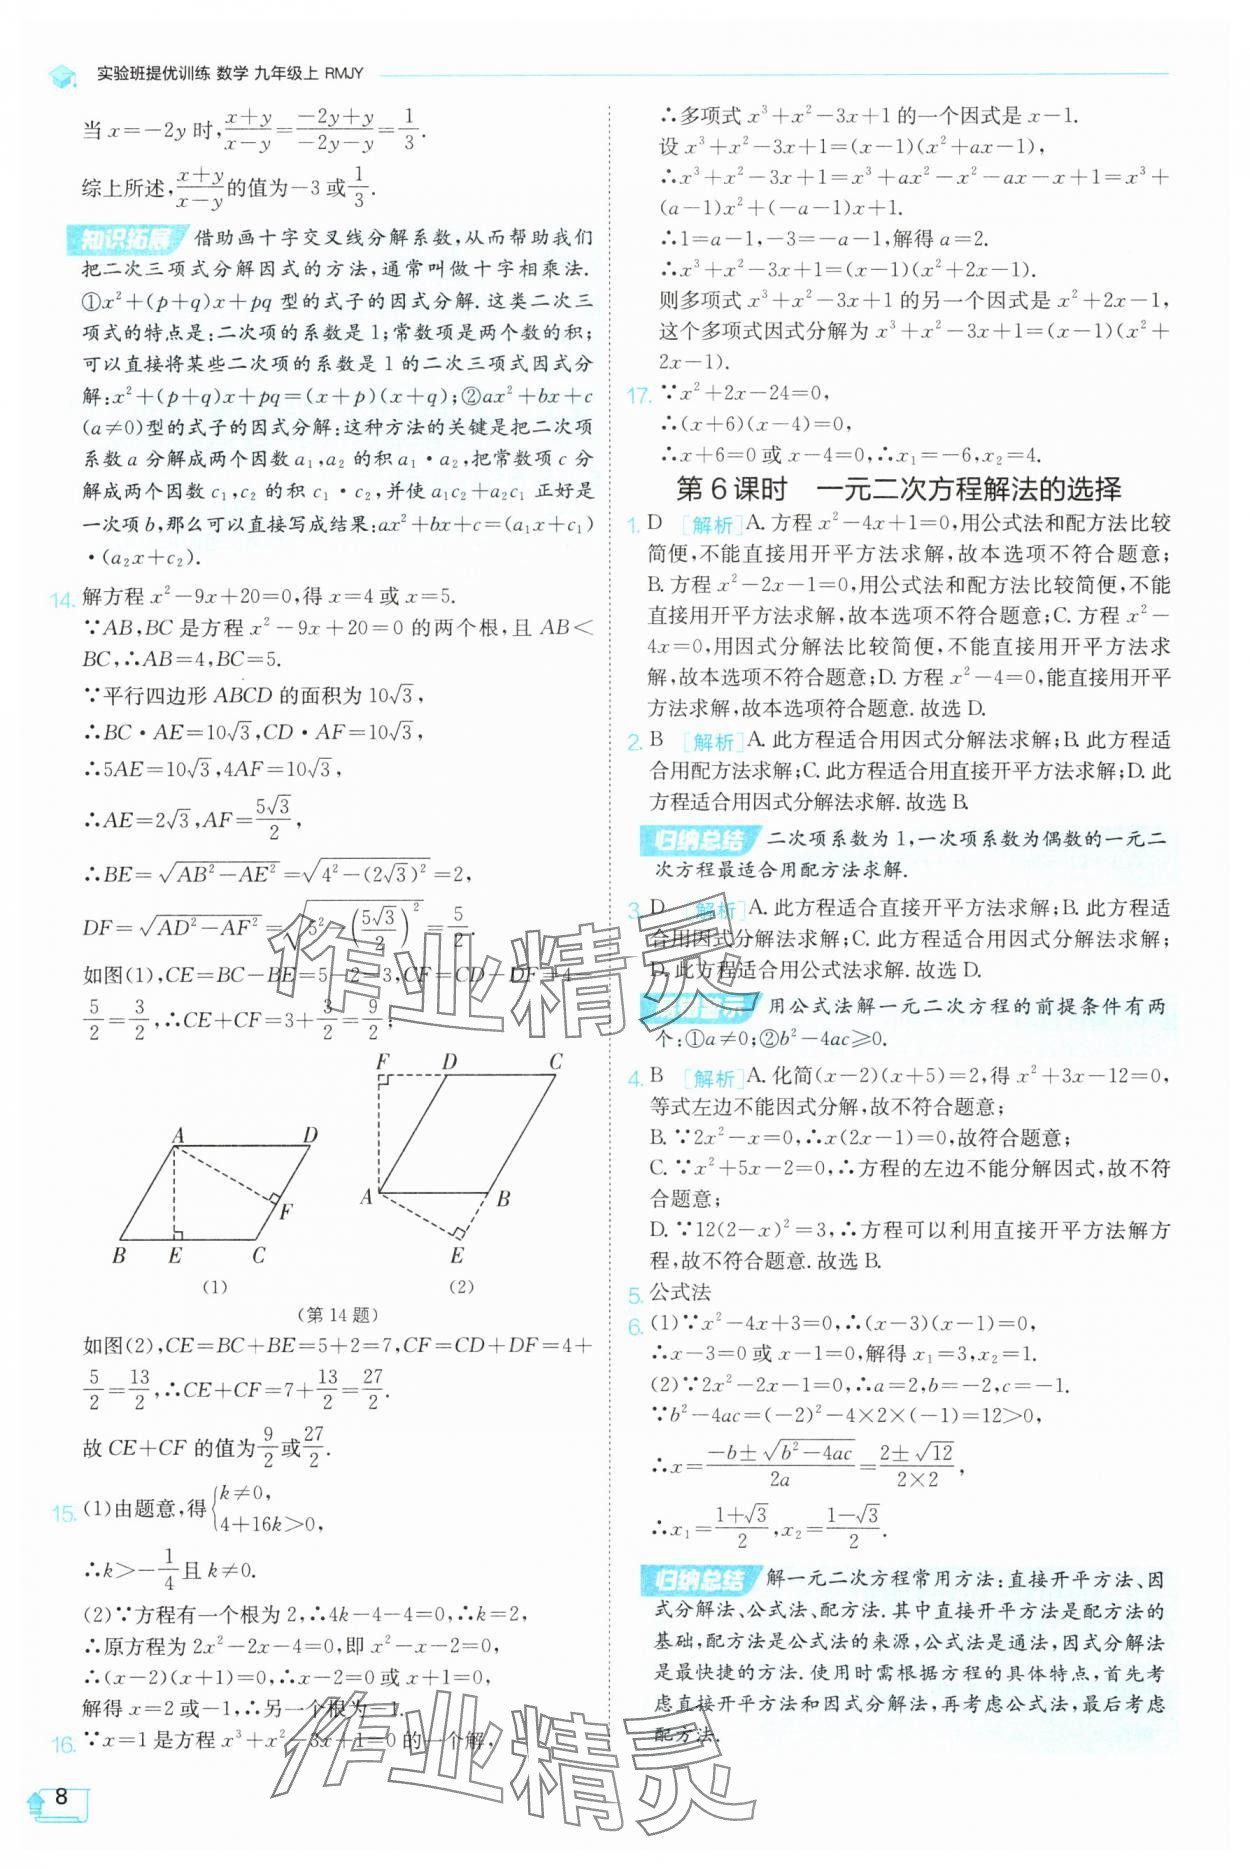 实验班提优训练 数学 九年级上 RMJY
当 x=-2y 时, (x+y)/(x-y)=(-2y+y)/(-2y-y)=1/3.
综上所述, (x+y)/(x-y) 的值为-3 或 1/3.
知识拓展 借助画十字交叉线分解系数,从而帮助我们
把二次三项式分解因式的方法,通常叫做十字相乘法.
①x²+(p+q)x+pq 型的式子的因式分解. 这类二次三
项式的特点是:二次项的系数是 1;常数项是两个数的积;
可以直接将某些二次项的系数是 1 的二次三项式因式分
解:x²+(p+q)x+pq=(x+p)(x+q);②ax²+bx+c
(a≠0)型的式子的因式分解:这种方法的关键是把二次项
系数 a 分解成两个因数 a₁,a₂ 的积 a₁·a₂,把常数项 c 分
解成两个因数 c₁,c₂ 的积 c₁·c₂,并使 a₁c₂+a₂c₁ 正好是
一次项 b,那么可以直接写成结果:ax²+bx+c=(a₁x+c₁)
·(a₂x+c₂).
14. 解方程 x²-9x+20=0,得 x=4 或 x=5.
∵AB,BC 是方程 x²-9x+20=0 的两个根,且 AB<
BC,∴AB=4,BC=5.
∵平行四边形 ABCD 的面积为 10√3,
∴BC·AE=10√3,CD·AF=10√3,
∴5AE=10√3,4AF=10√3,
∴AE=2√3,AF=5√3/2,
∴BE=√(AB²-AE²)=√(4²-(2√3)²)=2,
DF=√(AD²-AF²)=√(5²-(5√3/2)²)=5/2.
如图(1),CE=BC-BE=5-2=3,CF=CD-DF=4-
5/2=3/2,∴CE+CF=3+3/2=9/2;
A D B E C F
(1)
F D C A B E
(2)
(第 14 题)
如图(2),CE=BC+BE=5+2=7,CF=CD+DF=4+
5/2=13/2,∴CE+CF=7+13/2=27/2.
故 CE+CF 的值为 9/2 或 27/2.
15. (1)由题意,得{k≠0,
4+16k>0,
∴k>-1/4 且 k≠0.
(2)∵方程有一个根为 2,∴4k-4-4=0,∴k=2,
∴原方程为 2x²-2x-4=0,即 x²-x-2=0,
∴(x-2)(x+1)=0,∴x-2=0 或 x+1=0,
解得 x=2 或-1,∴另一个根为-1.
16. ∵x=1 是方程 x³+x²-3x+1=0 的一个解,
8
∴多项式 x³+x²-3x+1 的一个因式是 x-1.
设 x³+x²-3x+1=(x-1)(x²+ax-1),
∴x³+x²-3x+1=x³+ax²-x²-ax-x+1=x³+
(a-1)x²+(-a-1)x+1.
∴1=a-1,-3=-a-1,解得 a=2.
∴x³+x²-3x+1=(x-1)(x²+2x-1).
则多项式 x³+x²-3x+1 的另一个因式是 x²+2x-1,
这个多项式因式分解为 x³+x²-3x+1=(x-1)(x²+
2x-1).
17. ∵x²+2x-24=0,
∴(x+6)(x-4)=0,
∴x+6=0 或 x-4=0,∴x₁=-6,x₂=4.
第 6 课时 一元二次方程解法的选择
1. D [解析]A. 方程 x²-4x+1=0,用公式法和配方法比较
简便,不能直接用开平方法求解,故本选项不符合题意;
B. 方程 x²-2x-1=0,用公式法和配方法比较简便,不能
直接用开平方法求解,故本选项不符合题意;C. 方程 x²-
4x=0,用因式分解法比较简便,不能直接用开平方法求解,
故本选项不符合题意;D. 方程 x²-4=0,能直接用开平
方法求解,故本选项符合题意. 故选 D.
2. B [解析]A. 此方程适合用因式分解法求解;B. 此方程适
合用配方法求解;C. 此方程适合用直接开平方法求解;D. 此
方程适合用因式分解法求解. 故选 B.
归纳总结 二次项系数为 1,一次项系数为偶数的一元二
次方程最适合用配方法求解.
3. D [解析]A. 此方程适合直接开平方法求解;B. 此方程适
合用因式分解法求解;C. 此方程适合用因式分解法求解;
D. 此方程适合用公式法求解. 故选 D.
用公式法解一元二次方程的前提条件有两
个:①a≠0;②b²-4ac≥0.
4. B [解析]A. 化简(x-2)(x+5)=2,得 x²+3x-12=0,
等式左边不能因式分解,故不符合题意;
B. ∵2x²-x=0,∴x(2x-1)=0,故符合题意;
C. ∵x²+5x-2=0,∴方程的左边不能分解因式,故不符
合题意;
D. ∵12(2-x)²=3,∴方程可以利用直接开平方法解方
程,故不符合题意. 故选 B.
5. 公式法
6. (1)∵x²-4x+3=0,∴(x-3)(x-1)=0,
∴x-3=0 或 x-1=0,解得 x₁=3,x₂=1.
(2)∵2x²-2x-1=0,∴a=2,b=-2,c=-1.
∵b²-4ac=(-2)²-4×2×(-1)=12>0,
∴x=(-b±√(b²-4ac))/2a=(2±√12)/(2×2),
∴x₁=(1+√3)/2,x₂=(1-√3)/2.
归纳总结 解一元二次方程常用方法:直接开平方法、因
式分解法、公式法、配方法. 其中直接开平方法是配方法的
基础,配方法是公式法的来源,公式法是通法,因式分解法
是最快捷的方法. 使用时需根据方程的具体特点,首先考
虑直接开平方法和因式分解法,再考虑公式法,最后考虑
配方法.
作业精灵
作业精灵